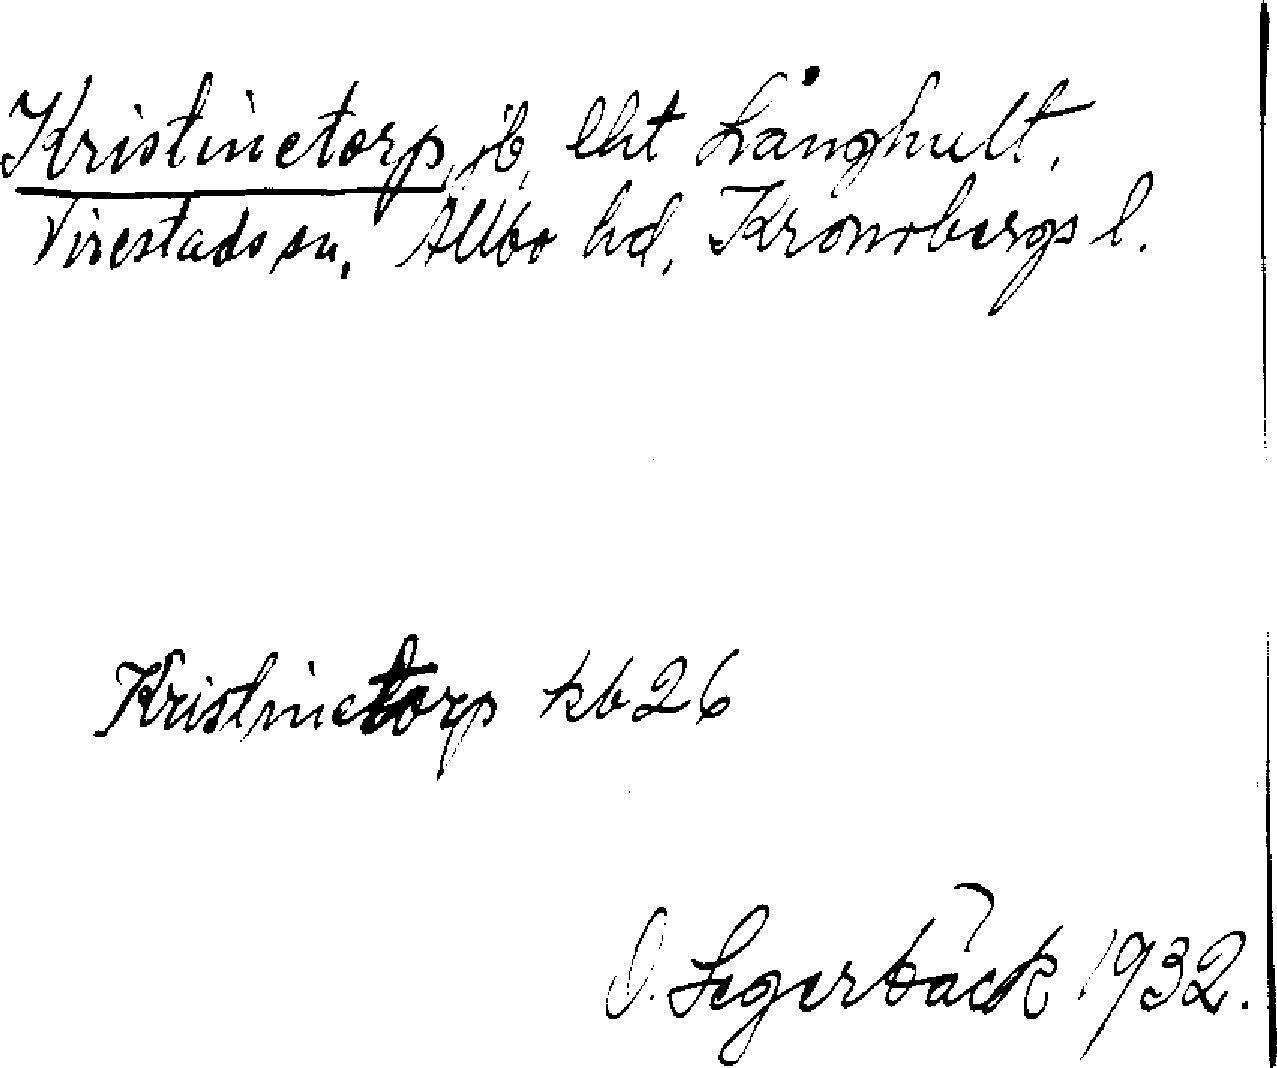 Kristinetorp, jb, lht Långhult,
Virestads sn, Allbo hd, Kronobergs l.
Kristinetorp kb 26
O. Segerbäck 1932.